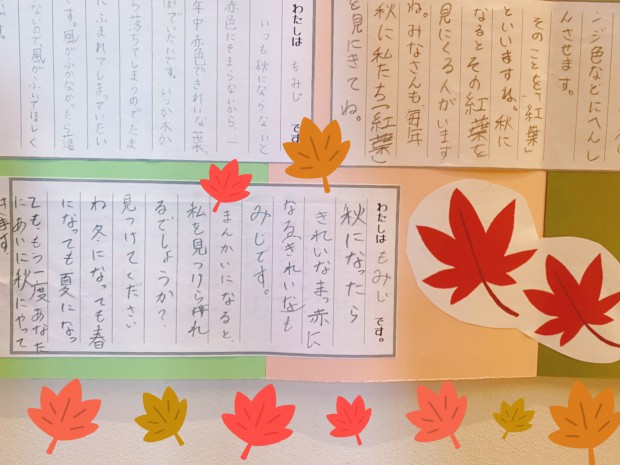 ンジ色などにへんし
んさせます。
そのことを「紅葉」
といいますね。秋に
なるとその紅葉を
見にくる人がいます
ね。みなさんも、毎年
秋に私たち「紅葉」
を見にきてね。
わたしは もみじ です
いつも秋にならないと
赤色にそまらないから、一
年中赤色できれいな葉、
でいたいです。いつか木か
ら落ちてしまうのでたま
にふまれてしまっていたい
す。風がふかなかったら落
ないので風がふいてほしく
わたしは もみじ です。
秋になったら
きれいなまっ赤に
なるきれいなも
みじです。
まんかいになると、
私を見つけられ
るでしょうか？
見つけてください
ね 冬になっても春
になっても夏になっ
てももう一度あなた
にあいに秋にやって
きます。